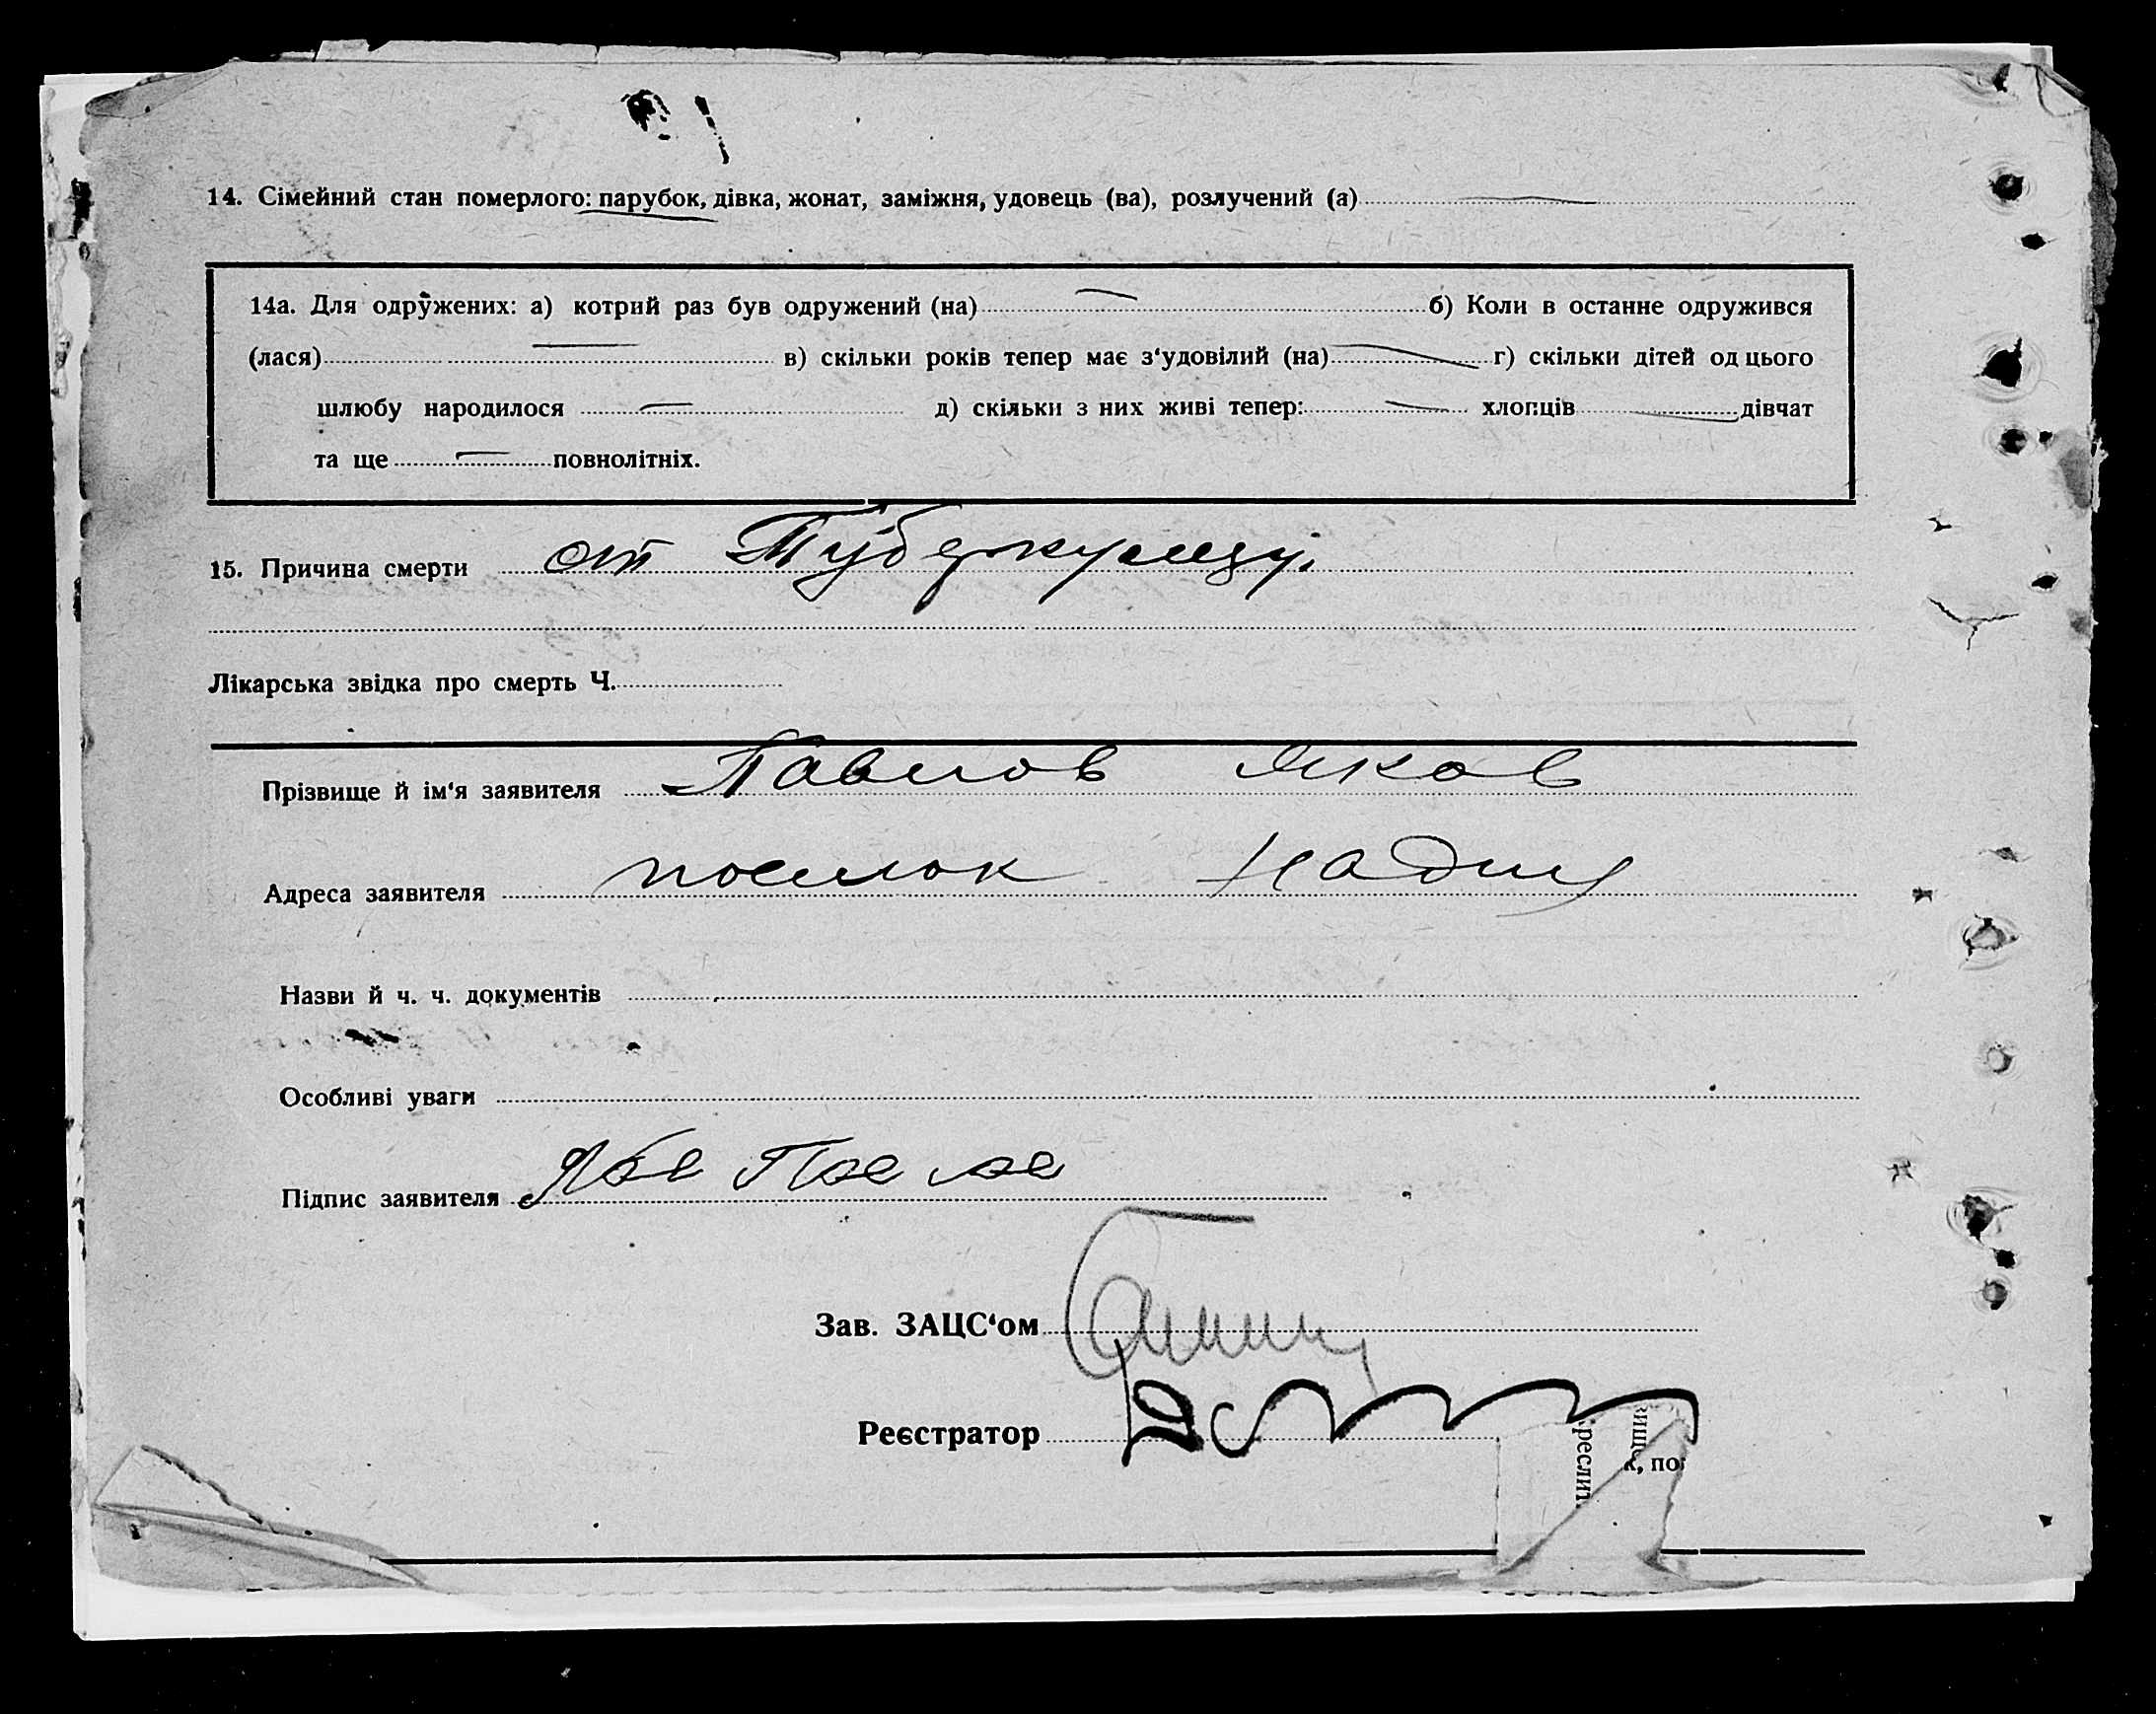 14. Сімейний стан померлого: парубок, дівка, жонат, заміжня, удовець (ва), розлучений (а)
14а. Для одружених: а) котрий раз був одружений (на) б) Коли в останне одружився
(лася) в) скільки років тепер має з‘удовілий (на) г) скільки дітей од цього
шлюбу народилося д) скільки з них живі тепер: хлопців дівчат
та ще повнолітніх.
15. Причина смерти от
Лікарська звідка про смерть Ч.
Прізвище й ім‘я заявителя Павлов Яков
Адреса заявителя поселок
Назви й ч. ч. документів
Особливі уваги
Підпис заявителя
Зав. ЗАЦС‘ом
Реєстратор